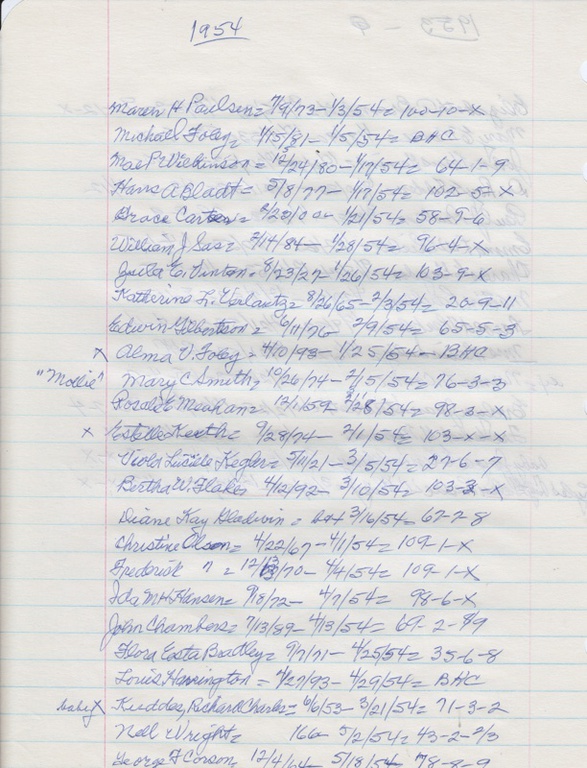 1954
Maren H Paulsen = 7/9/73 - 1/3/54 = 100-10-X
Michael Foley = 1/15/81 - 1/5/54 = BHC
Mae P Wilkinson = /24/80 - 1/17/54 = 64-1-9
Hans A Bladt = 5/8/77 - 1/17/54 = 102-5-X
Grace Carson = 2/20/00 - 1/21/54 = 58-9-6
William J Sas = 2/14/84 - 1/28/54 = 96-4-X
Julia E. Vinton = 8/23/27 - 1/26/54 = 103-9-X
Katherine L. = 8/26/65 - 2/3/54 = 20-9-11
Edwin Gilbertson = 6/11/76 - 2/9/54 = 65-5-3
X Alma V. Foley = 4/10/98 - 1/25/54 - BHC
"Mollie" Mary C Smith = 10/26/74 - 2/15/54 = 76-3-3
Meehan = 12/1/59 - 2/28/54 = 98-3-X
X Estelle Keeth = 9/28/74 - 2/1/54 = 103-X-X
Viola Lucille Kegler = 5/11/21 - 3/5/54 = 27-6-7
Bertha W. Flakes 4/12/92 - 3/10/54 = 103-3-X
Diane Kay Gladwin = 3/16/54 = 67-7-8
Christine Olson = 4/22/67 - 4/1/54 = 109-1-X
Frederick " = 12/13/70 - 4/4/54 = 109-1-X
Ida M H Hansen = 9/18/72 - 4/7/54 = 98-6-X
John Chambers = 7/13/89 - 4/13/54 = 69-2-8/9
Flora Easta Bradley = 9/7/71 - 4/25/54 = 35-6-8
Louis Harrington = 4/27/93 - 4/29/54 = BHC
baby X Kuddes, Richard Charles = 6/6/53 - 3/21/54 = 71-3-2
Nell Wright = 5/2/54 = 43-2-2/3
George F Corson 12/4/64 - 5/18/54 = 78-8-9